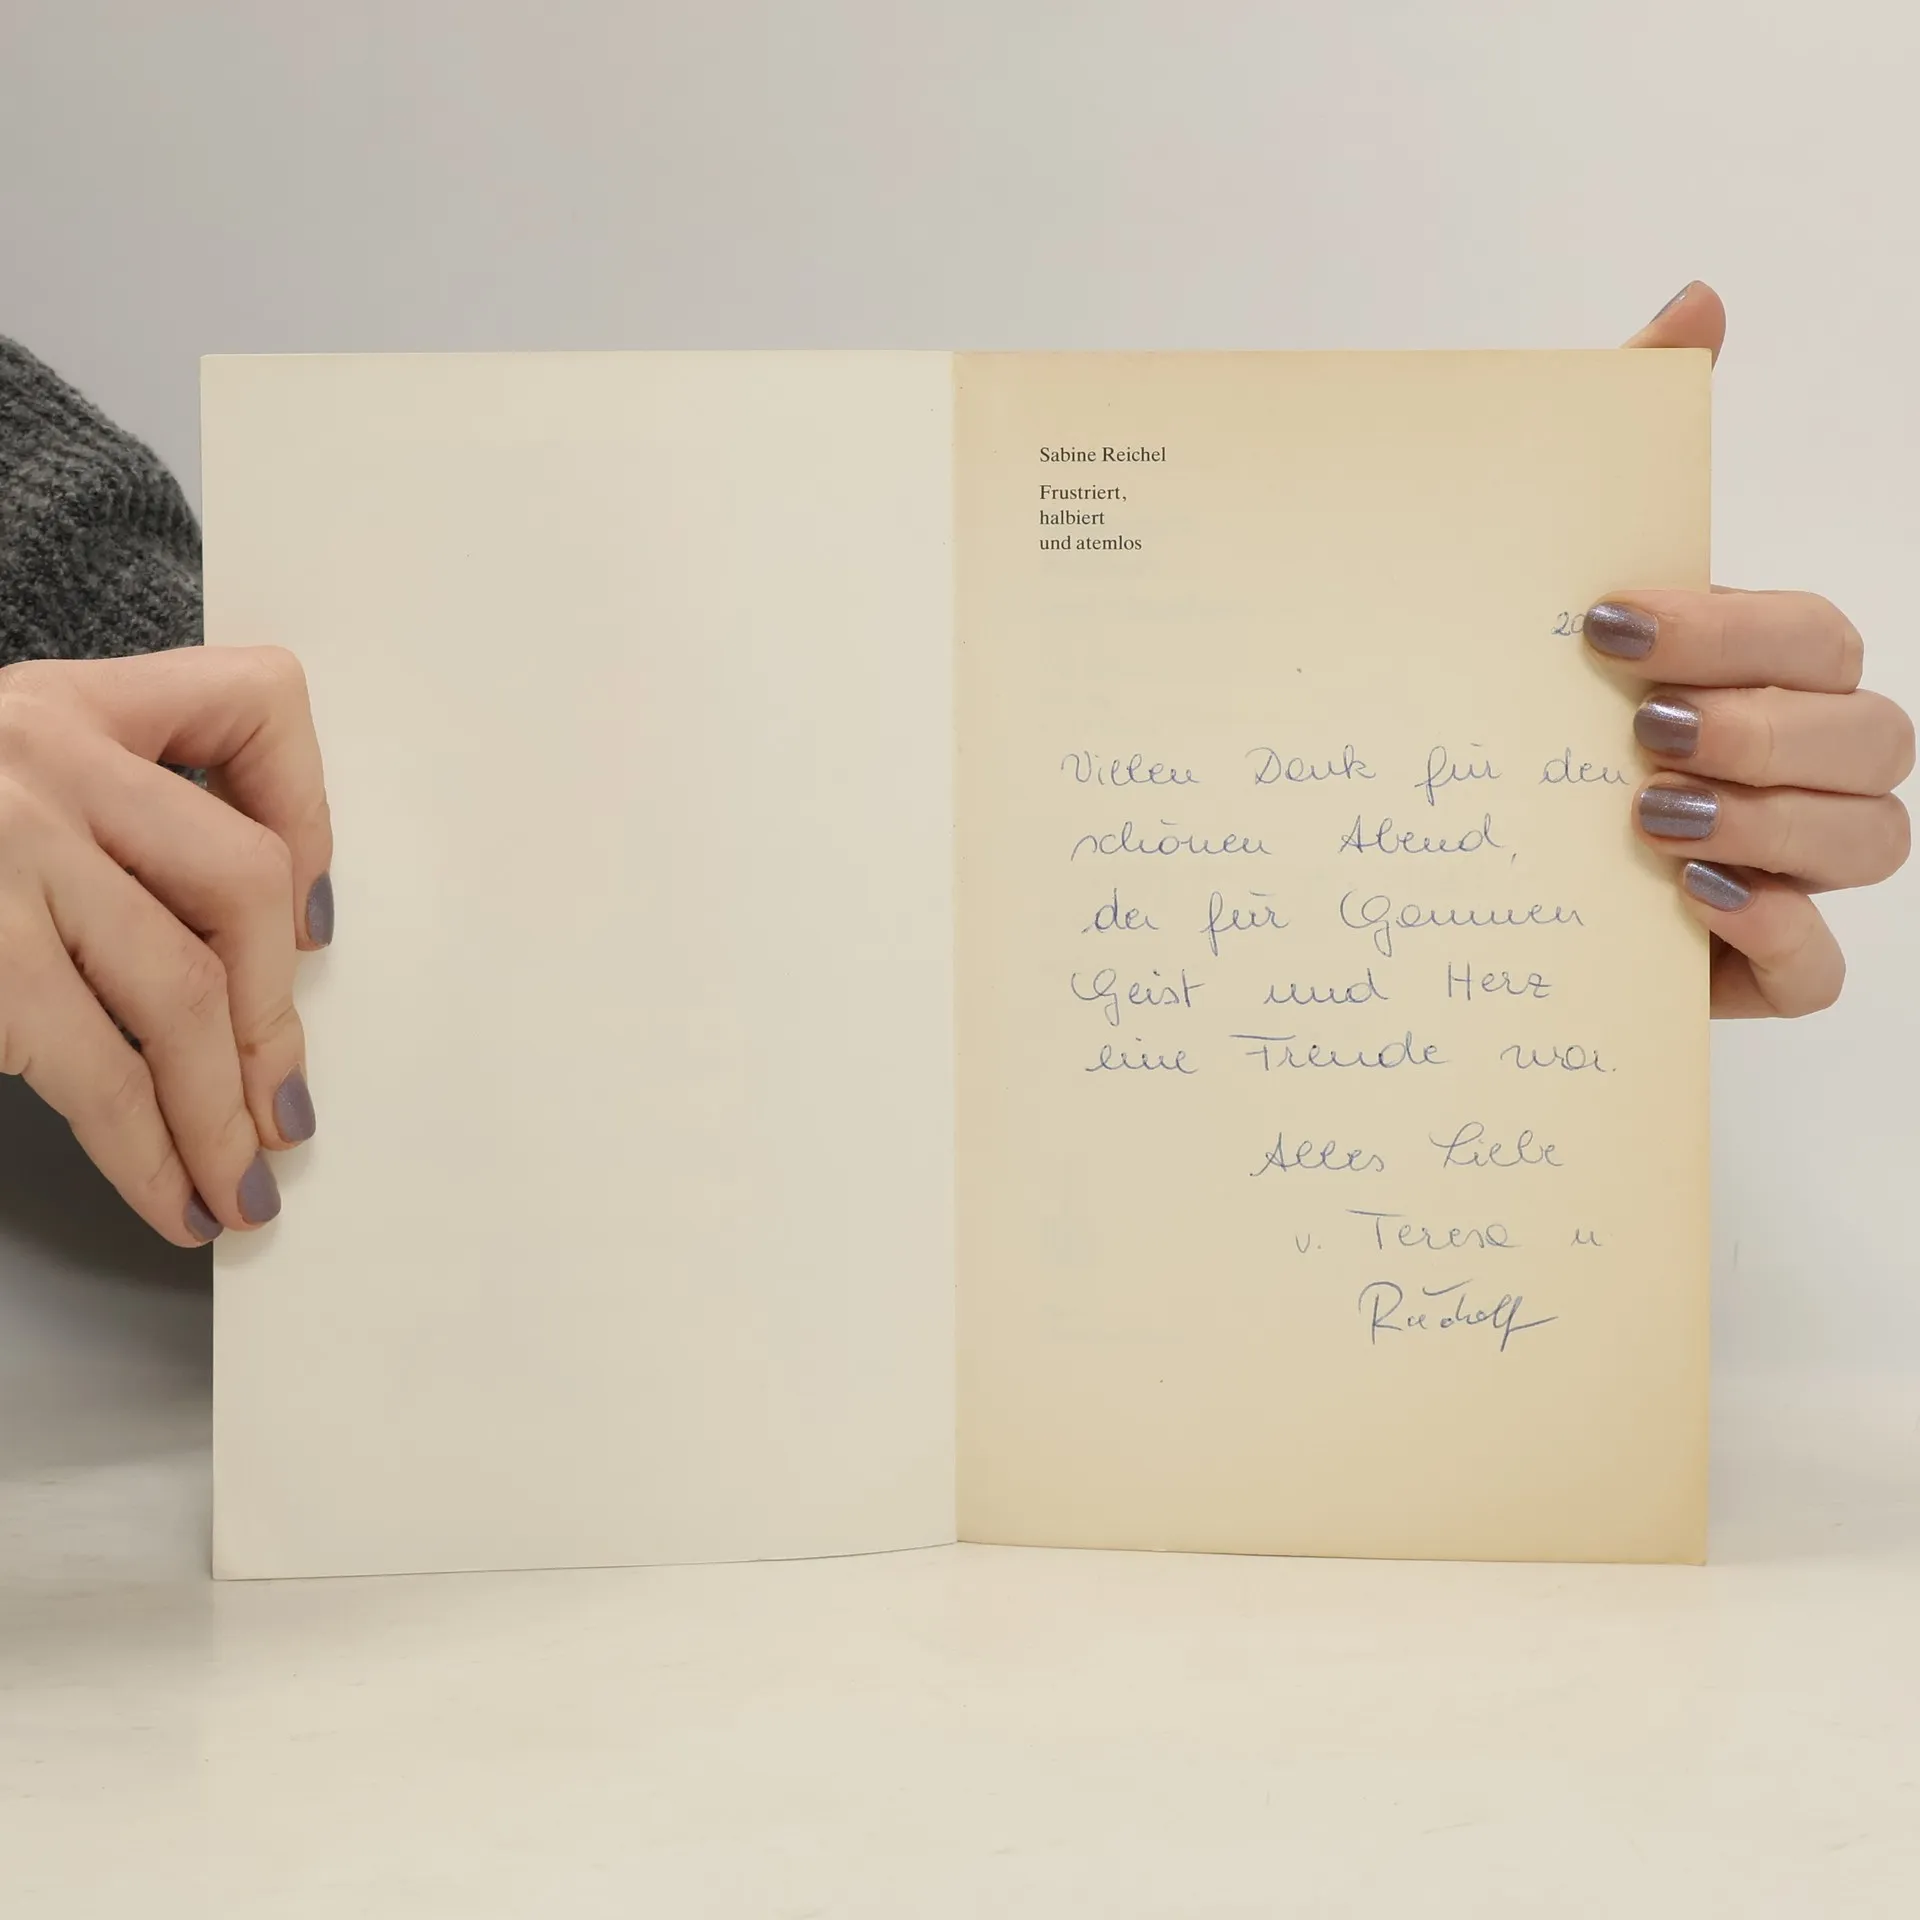 Sabine Reichel
Frustriert,
halbiert
und atemlos
20
Vielen Dank für den
schönen Abend,
der für Gaumen
Geist und Herz
eine Freude war.
Alles Liebe
v. Teresa u
Rudolf